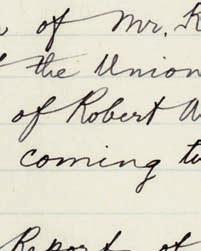 of Mr. K
the Union
of Robert
coming
Report of